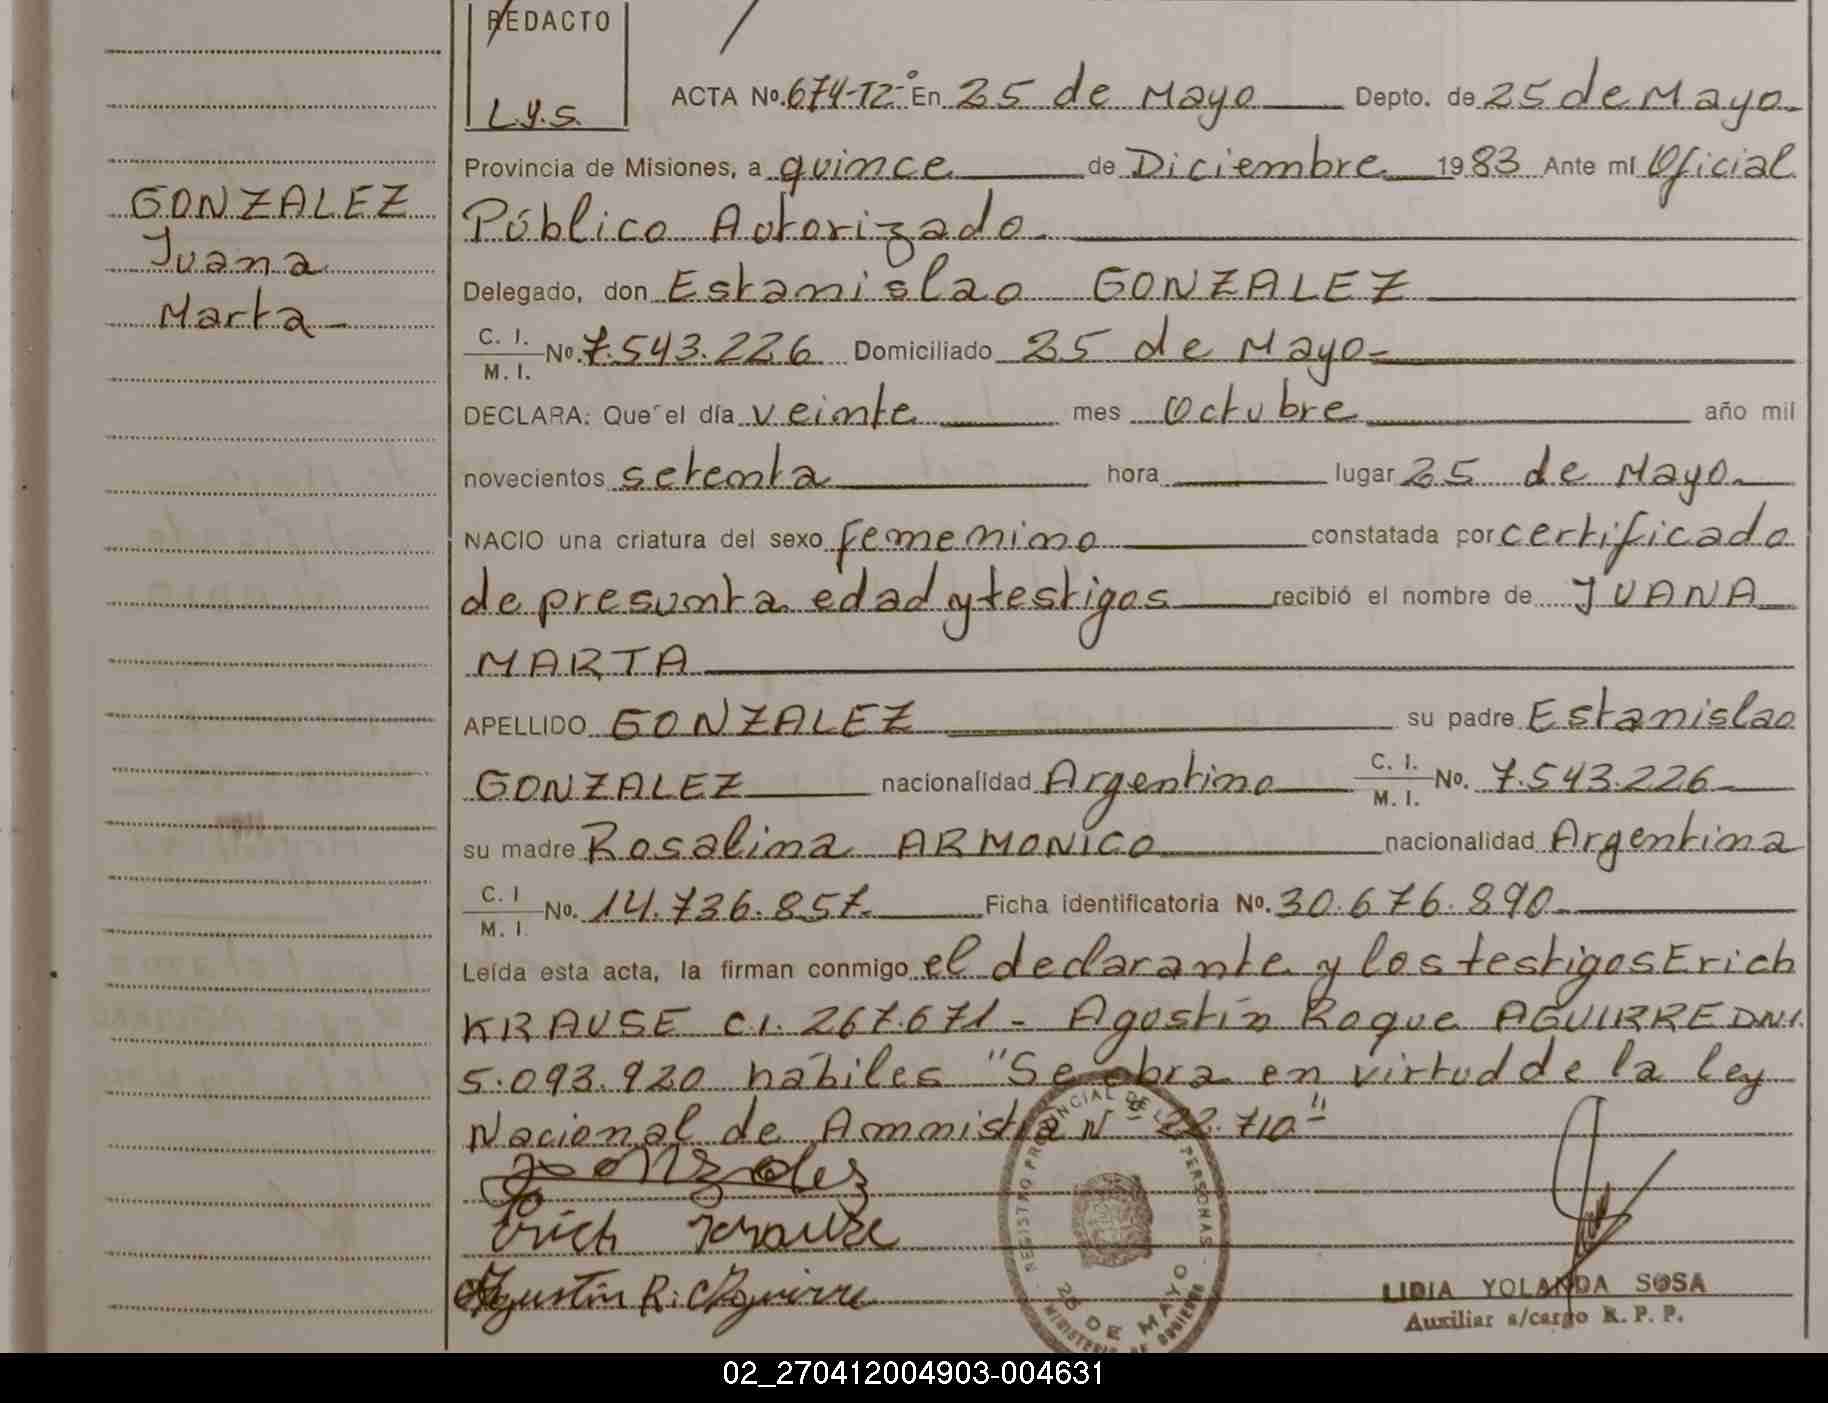 REDACTO
L.Y.S.
ACTA No. 674-T2° En 25 de Mayo Depto. de 25 de Mayo
GONZALEZ
Juana
Marta
Provincia de Misiones, a quince de Diciembre 1983 Ante mí Oficial
Público Autorizado
Delegado, don Estanislao GONZALEZ
C. I.
M. I. No. 7.543.226 Domiciliado 25 de Mayo
DECLARA: Que el día veinte mes Octubre año mil
novecientos setenta hora lugar 25 de Mayo
NACIO una criatura del sexo femenino constatada por certificado
de presunta edad y testigos recibió el nombre de JUANA
MARTA
APELLIDO GONZALEZ su padre Estanislao
GONZALEZ nacionalidad Argentino C. I. M. I. No. 7.543.226
su madre Rosalina ARMONICO nacionalidad Argentina
C. I
M. I. No. 14.736.857. Ficha identificatoria No. 30.676.890
Leída esta acta, la firman conmigo el declarante y los testigos Erich
KRAUSE C.I. 267.671 - Agostín Roque AGUIRRE DNI.
5.093.920 hábiles "Se obra en virtud de la ley
Nacional de Ammistia N° 22.710"
Gonzalez
Erich Krause
Agustín R. Aguirre
REGISTRO PROVINCIAL DE LAS PERSONAS
25 DE MAYO
MINISTERIO DE GOBIERNO
LIDIA YOLANDA SOSA
Auxiliar a/cargo R. P. P.
02_270412004903-004631